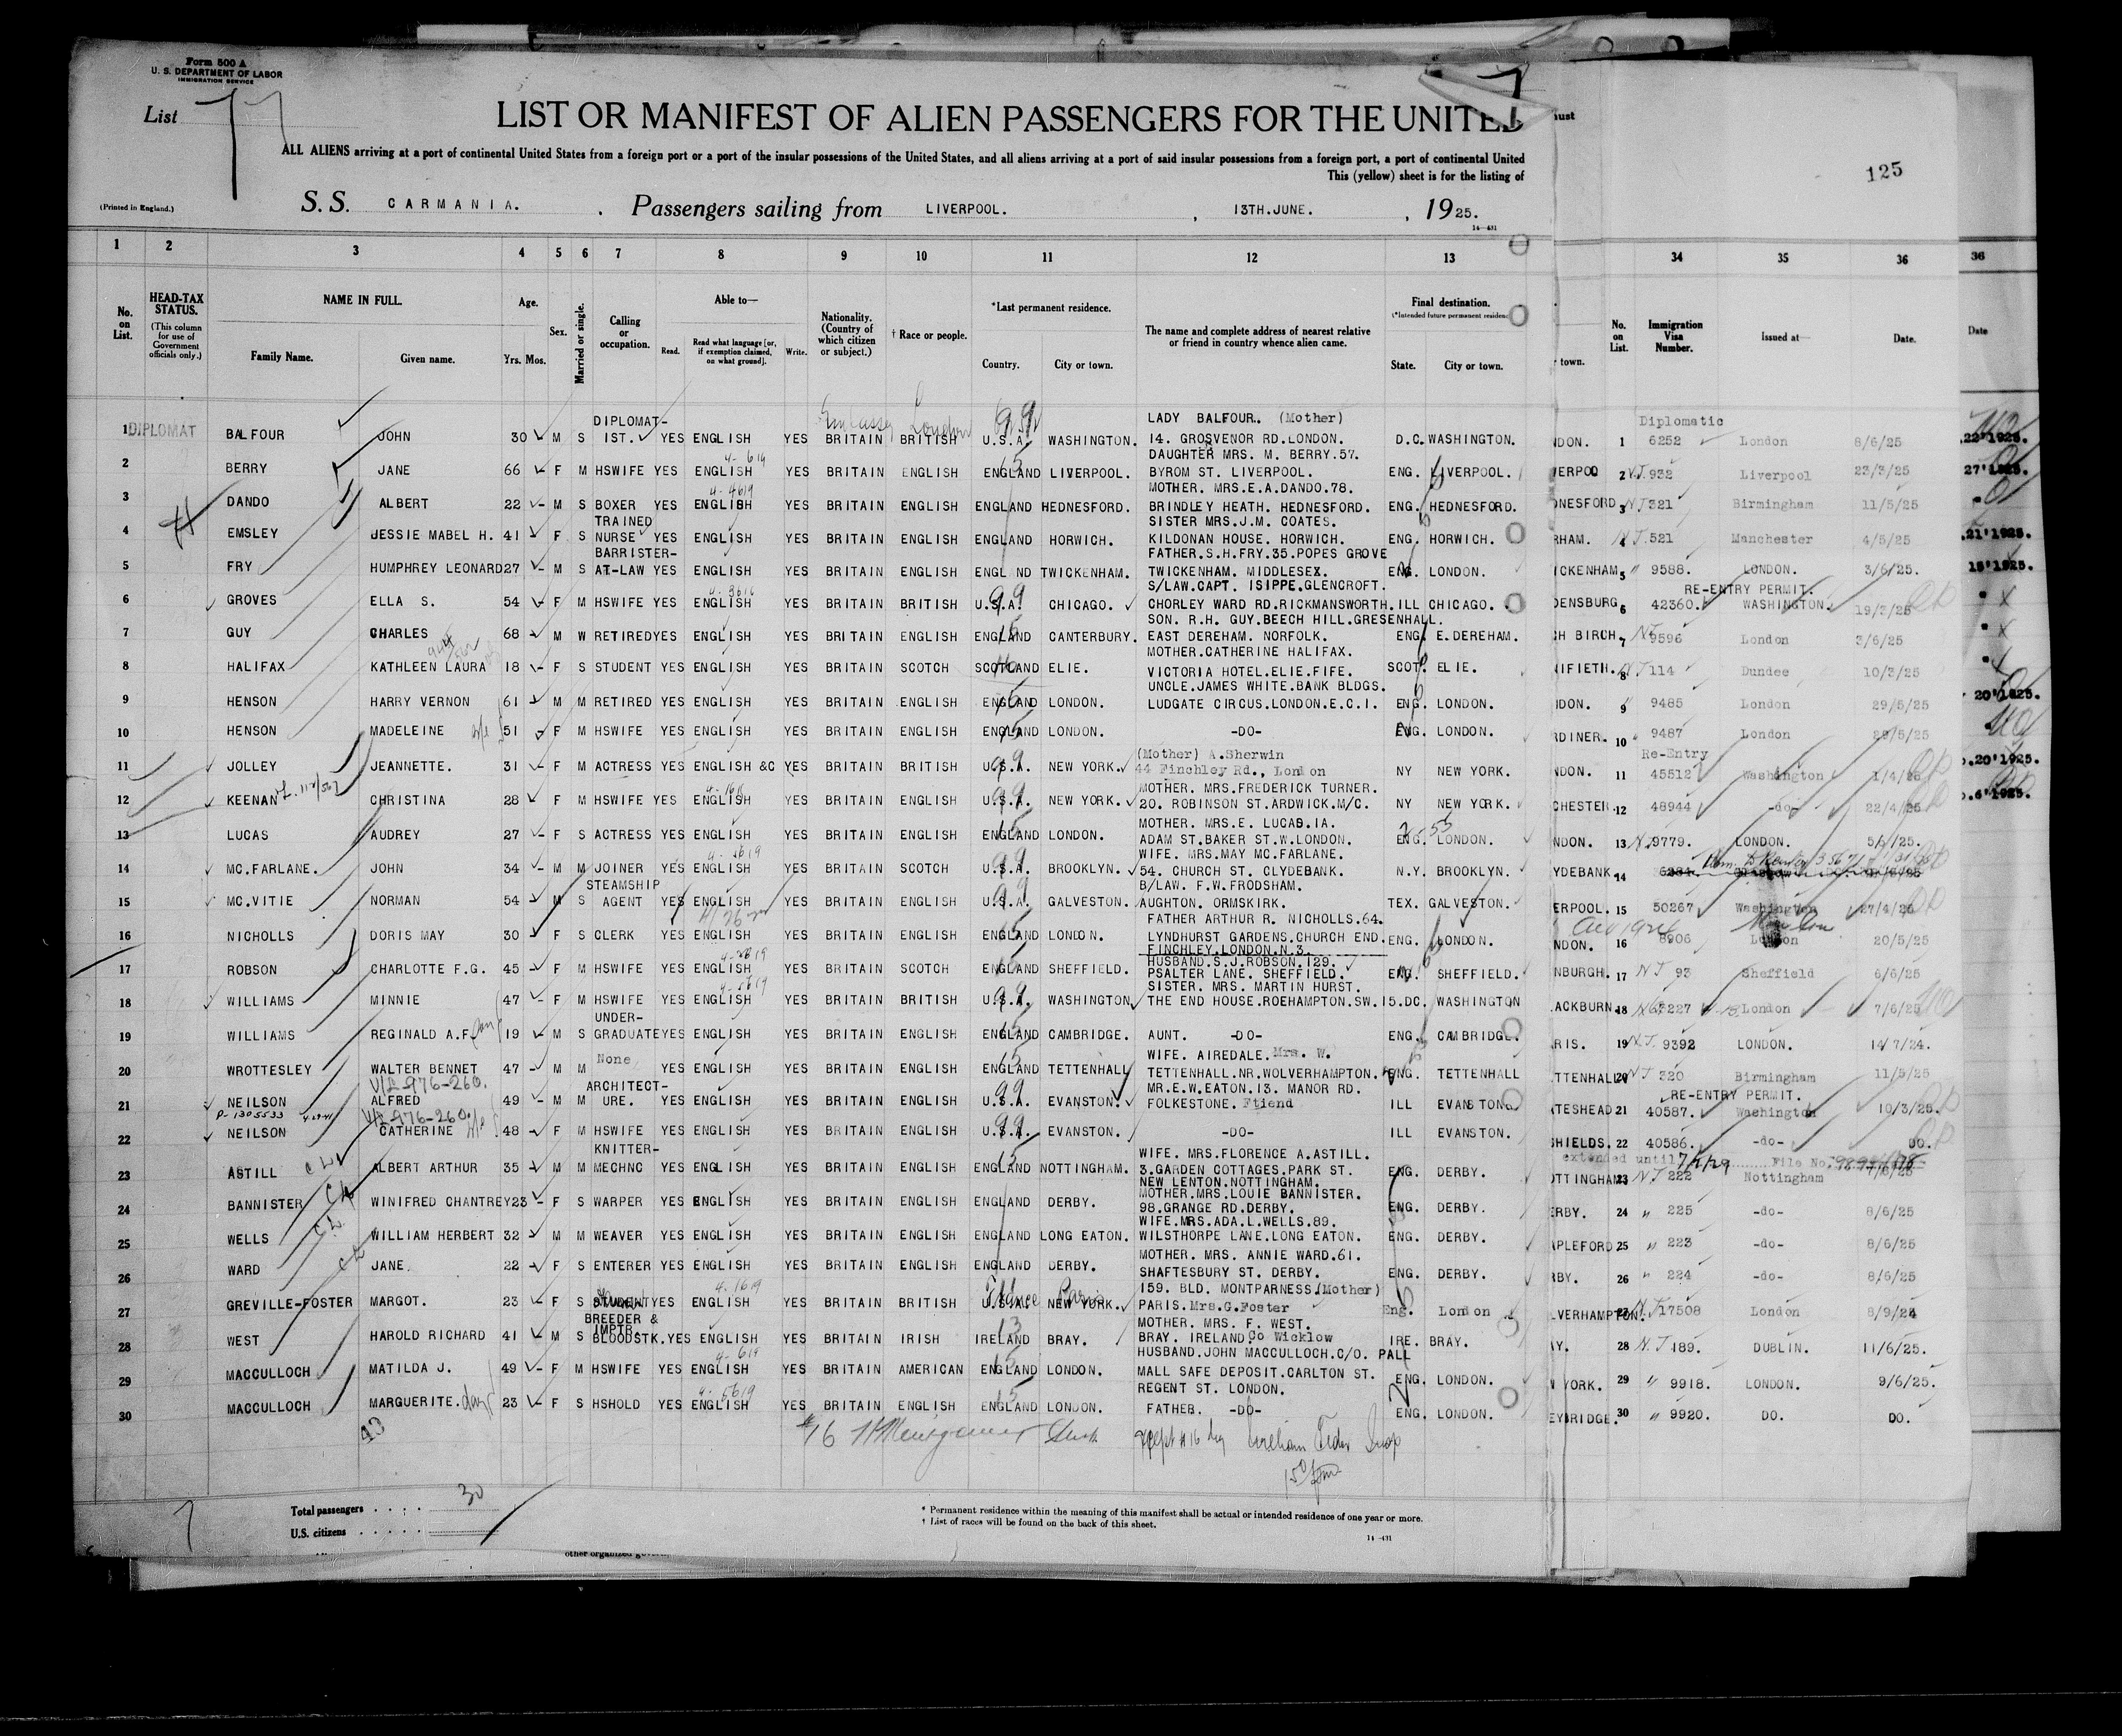 Form 500 A
U. S. DEPARTMENT OF LABOR
IMMIGRATION SERVICE
List 7
LIST OR MANIFEST OF ALIEN PASSENGERS FOR THE UNITED
ALL ALIENS arriving at a port of continental United States from a foreign port or a port of the insular possessions of the United States, and all aliens arriving at a port of said insular possessions from a foreign port, a port of continental United
This (yellow) sheet is for the listing of
125
(Printed in England.)
S. S. CARMANIA. , Passengers sailing from LIVERPOOL. , 13TH.JUNE. , 1925.
14-431
1 2 3 4 5 6 7 8 9 10 11 12 13 34 35 36 36
No. on List. HEAD-TAX STATUS. (This column for use of Government officials only.) NAME IN FULL. Family Name. Given name. Age. Yrs. Mos. Sex. Married or single. Calling or occupation. Able to— Read. Read what language [or, if exemption claimed, on what ground]. Write. Nationality. (Country of which citizen or subject.) † Race or people. *Last permanent residence. Country. City or town. The name and complete address of nearest relative or friend in country whence alien came. Final destination. (*Intended future permanent residence) State. City or town. town. No. on List. Immigration Visa Number. Issued at— Date. Date
1 DIPLOMAT BALFOUR JOHN 30 M S DIPLOMAT-IST. YES ENGLISH YES BRITAIN BRITISH U.S.A. WASHINGTON. LADY BALFOUR. (Mother) 14. GROSVENOR RD.LONDON. D.C. WASHINGTON. NDON. 1 Diplomatic 6252 London 8/6/25
2 BERRY JANE 66 F M HSWIFE YES ENGLISH YES BRITAIN ENGLISH ENGLAND LIVERPOOL. DAUGHTER MRS. M. BERRY.57. BYROM ST. LIVERPOOL. ENG. LIVERPOOL. 2 932 Liverpool 23/3/25
3 DANDO ALBERT 22 M S BOXER YES ENGLISH YES BRITAIN ENGLISH ENGLAND HEDNESFORD. MOTHER. MRS.E.A.DANDO.78. BRINDLEY HEATH. HEDNESFORD. ENG. HEDNESFORD. 3 321 Birmingham 11/5/25
4 EMSLEY JESSIE MABEL H. 41 F S TRAINED NURSE YES ENGLISH YES BRITAIN ENGLISH ENGLAND HORWICH. SISTER MRS.J.M. COATES. KILDONAN HOUSE. HORWICH. ENG. HORWICH. RHAM. 4 521 Manchester 4/5/25
5 FRY HUMPHREY LEONARD 27 M S BARRISTER-AT-LAW YES ENGLISH YES BRITAIN ENGLISH ENGLAND TWICKENHAM. FATHER.S.H.FRY.35.POPES GROVE TWICKENHAM. MIDDLESEX. ENG. LONDON. ICKENHAM 5 " 9588. LONDON. 3/6/25.
6 GROVES ELLA S. 54 F M HSWIFE YES ENGLISH YES BRITAIN BRITISH U.S.A. CHICAGO. S/LAW.CAPT. ISIPPE.GLENCROFT. CHORLEY WARD RD.RICKMANSWORTH. ILL CHICAGO. DENSBURG 6 RE-ENTRY PERMIT. 42360. WASHINGTON. 19/3/25
7 GUY CHARLES 68 M W RETIRED YES ENGLISH YES BRITAIN ENGLISH ENGLAND CANTERBURY. SON. R.H. GUY.BEECH HILL.GRESENHALL. EAST DEREHAM. NORFOLK. ENG. E.DEREHAM. H BIRCH. 7 9596 London 3/6/25
8 HALIFAX KATHLEEN LAURA 18 F S STUDENT YES ENGLISH YES BRITAIN SCOTCH SCOTLAND ELIE. MOTHER.CATHERINE HALIFAX. VICTORIA HOTEL.ELIE.FIFE. SCOT. ELIE. NIFIETH. 8 114 Dundee 10/3/25
9 HENSON HARRY VERNON 61 M M RETIRED YES ENGLISH YES BRITAIN ENGLISH ENGLAND LONDON. UNCLE.JAMES WHITE.BANK BLDGS. LUDGATE CIRCUS.LONDON.E.C.1. ENG. LONDON. NDON. 9 9485 London 29/5/25
10 HENSON MADELEINE 51 F M HSWIFE YES ENGLISH YES BRITAIN ENGLISH ENGLAND LONDON. -DO- ENG. LONDON. RDINER. 10 " 9487 London 29/5/25
11 JOLLEY JEANNETTE. 31 F M ACTRESS YES ENGLISH &C YES BRITAIN BRITISH U.S.A. NEW YORK. (Mother) A.Sherwin 44 Finchley Rd., London NY NEW YORK. NDON. 11 Re-Entry 45512 Washington 1/4/25
12 KEENAN CHRISTINA 28 F M HSWIFE YES ENGLISH YES BRITAIN ENGLISH U.S.A. NEW YORK. MOTHER. MRS.FREDERICK TURNER. 20. ROBINSON ST.ARDWICK.M/C. NY NEW YORK. CHESTER. 12 48944 -do- 22/4/25
13 LUCAS AUDREY 27 F S ACTRESS YES ENGLISH YES BRITAIN ENGLISH ENGLAND LONDON. MOTHER. MRS.E. LUCAS.IA. ADAM ST.BAKER ST.W.LONDON. ENG. LONDON. NDON. 13 9779. LONDON. 5/6/25.
14 MC.FARLANE. JOHN 34 M M JOINER YES ENGLISH YES BRITAIN SCOTCH U.S.A. BROOKLYN. WIFE. MRS.MAY MC.FARLANE. 54. CHURCH ST. CLYDEBANK. N.Y. BROOKLYN. YDEBANK. 14
15 MC.VITIE NORMAN 54 M S STEAMSHIP AGENT YES ENGLISH YES BRITAIN ENGLISH U.S.A. GALVESTON. B/LAW. F.W.FRODSHAM. AUGHTON. ORMSKIRK. TEX. GALVESTON. ERPOOL. 15 50267 Washington 27/4/25
16 NICHOLLS DORIS MAY 30 F S CLERK YES ENGLISH YES BRITAIN ENGLISH ENGLAND LONDON. FATHER ARTHUR R. NICHOLLS.64. LYNDHURST GARDENS.CHURCH END. FINCHLEY.LONDON.N.3. ENG. LONDON. NDON. 16 8906 London 20/5/25
17 ROBSON CHARLOTTE F.G. 45 F M HSWIFE YES ENGLISH YES BRITAIN SCOTCH ENGLAND SHEFFIELD. HUSBAND.S.J.ROBSON.129. PSALTER LANE. SHEFFIELD. ENG. SHEFFIELD. NBURGH. 17 93 Sheffield 6/6/25
18 WILLIAMS MINNIE 47 F M HSWIFE YES ENGLISH YES BRITAIN BRITISH U.S.A. WASHINGTON SISTER. MRS. MARTIN HURST. THE END HOUSE.ROEHAMPTON.SW.15. DC. WASHINGTON ACKBURN. 18 London 7/6/25
19 WILLIAMS REGINALD A.F. 19 M S UNDER-GRADUATE YES ENGLISH YES BRITAIN ENGLISH ENGLAND CAMBRIDGE. AUNT. -DO- ENG. CAMBRIDGE. RIS. 19 9392 LONDON. 14/7/24.
20 WROTTESLEY WALTER BENNET 47 M M None YES ENGLISH YES BRITAIN ENGLISH ENGLAND TETTENHALL WIFE. AIREDALE. Mrs. W. TETTENHALL.NR.WOLVERHAMPTON. ENG. TETTENHALL TTENHALL 20 320 Birmingham 11/5/25
21 NEILSON ALFRED 49 M M ARCHITECT-URE. YES ENGLISH YES BRITAIN ENGLISH U.S.A. EVANSTON. MR.E.W.EATON.13. MANOR RD. FOLKESTONE. Ftiend ILL EVANSTON. TESHEAD 21 RE-ENTRY PERMIT. 40587. Washington 10/3/25.
22 NEILSON CATHERINE 48 F M HSWIFE YES ENGLISH YES BRITAIN ENGLISH U.S.A. EVANSTON. -DO- ILL EVANSTON. SHIELDS. 22 40586. -do- DO.
extended until 7/2/29 File No.
23 ASTILL ALBERT ARTHUR 35 M M KNITTER-MECHNC YES ENGLISH YES BRITAIN ENGLISH ENGLAND NOTTINGHAM. WIFE. MRS.FLORENCE A.ASTILL. 3.GARDEN COTTAGES.PARK ST. NEW LENTON.NOTTINGHAM. ENG. DERBY. OTTINGHAM 23 222 Nottingham
24 BANNISTER WINIFRED CHANTREY 23 F S WARPER YES ENGLISH YES BRITAIN ENGLISH ENGLAND DERBY. MOTHER.MRS.LOUIE BANNISTER. 98.GRANGE RD.DERBY. ENG. DERBY. ERBY. 24 " 225 -do- 8/6/25
25 WELLS WILLIAM HERBERT 32 M M WEAVER YES ENGLISH YES BRITAIN ENGLISH ENGLAND LONG EATON. WIFE.MRS.ADA.L.WELLS.89. WILSTHORPE LANE.LONG EATON. ENG. DERBY. APLEFORD 25 " 223 -do- 8/6/25
26 WARD JANE. 22 F S ENTERER YES ENGLISH YES BRITAIN ENGLISH ENGLAND DERBY. MOTHER. MRS. ANNIE WARD.61. SHAFTESBURY ST. DERBY. ENG. DERBY. RBY. 26 " 224 -do- 8/6/25
27 GREVILLE-FOSTER MARGOT. 23 F S STUDENT YES ENGLISH YES BRITAIN BRITISH U.S.A. NEW YORK. France Paris 159. BLD. MONTPARNESS.(Mother) PARIS.Mrs.G.Foster Eng. London LVERHAMPTON. 27 17508 London 8/9/24
28 WEST HAROLD RICHARD 41 M S BREEDER & IMPTR. BLOODSTK. YES ENGLISH YES BRITAIN IRISH IRELAND BRAY. MOTHER. MRS. F. WEST. BRAY. IRELAND.Co Wicklow IRE. BRAY. AY. 28 189. DUBLIN. 11/6/25.
29 MACCULLOCH MATILDA J. 49 F M HSWIFE YES ENGLISH YES BRITAIN AMERICAN ENGLAND LONDON. HUSBAND.JOHN MACCULLOCH.C/O. PALL MALL SAFE DEPOSIT.CARLTON ST. REGENT ST. LONDON. ENG. LONDON. W YORK. 29 " 9918. LONDON. 9/6/25.
30 MACCULLOCH MARGUERITE. 23 F S HSHOLD YES ENGLISH YES BRITAIN ENGLISH ENGLAND LONDON. FATHER. -DO- ENG. LONDON. EYBRIDGE. 30 " 9920. DO. DO.
Total passengers . . . . 30
U.S. citizens . . . . .
* Permanent residence within the meaning of this manifest shall be actual or intended residence of one year or more.
† List of races will be found on the back of this sheet.
14-431